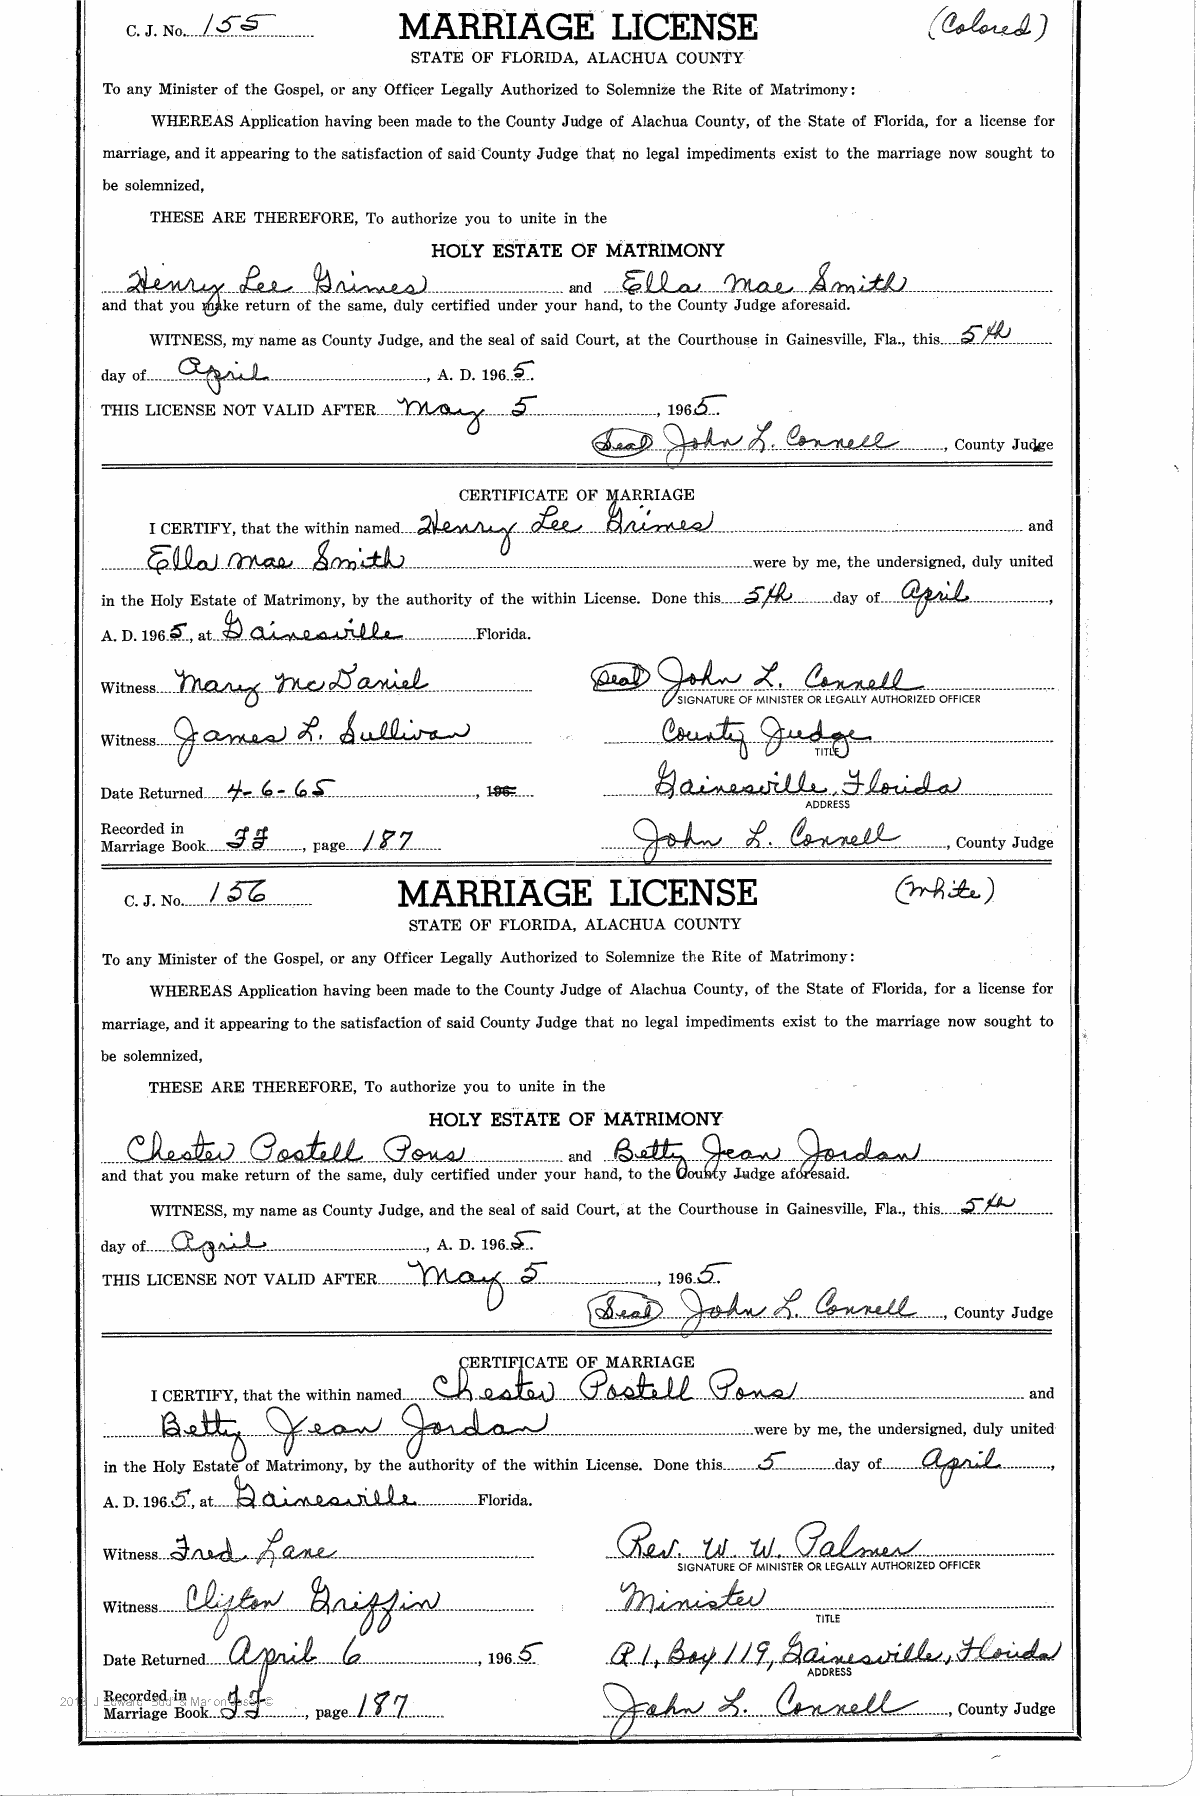 C. J. No. 155 MARRIAGE LICENSE (Colored)
STATE OF FLORIDA, ALACHUA COUNTY
To any Minister of the Gospel, or any Officer Legally Authorized to Solemnize the Rite of Matrimony:
WHEREAS Application having been made to the County Judge of Alachua County, of the State of Florida, for a license for
marriage, and it appearing to the satisfaction of said County Judge that no legal impediments exist to the marriage now sought to
be solemnized,
THESE ARE THEREFORE, To authorize you to unite in the
HOLY ESTATE OF MATRIMONY
Henry Lee Grimes and Ella Mae Smith
and that you make return of the same, duly certified under your hand, to the County Judge aforesaid.
WITNESS, my name as County Judge, and the seal of said Court, at the Courthouse in Gainesville, Fla., this 5th
day of April, A. D. 1965.
THIS LICENSE NOT VALID AFTER May 5, 1965.
Seal John L. Connell, County Judge
CERTIFICATE OF MARRIAGE
I CERTIFY, that the within named Henry Lee Grimes and
Ella Mae Smith were by me, the undersigned, duly united
in the Holy Estate of Matrimony, by the authority of the within License. Done this 5th day of April,
A. D. 1965, at Gainesville Florida.
Witness Mary McDaniel Seal John L. Connell
SIGNATURE OF MINISTER OR LEGALLY AUTHORIZED OFFICER
Witness James L. Sullivan County Judge
TITLE
Date Returned 4-6-65, 196 Gainesville, Florida
ADDRESS
Recorded in
Marriage Book FF, page 187 John L. Connell, County Judge
C. J. No. 156 MARRIAGE LICENSE (White)
STATE OF FLORIDA, ALACHUA COUNTY
To any Minister of the Gospel, or any Officer Legally Authorized to Solemnize the Rite of Matrimony:
WHEREAS Application having been made to the County Judge of Alachua County, of the State of Florida, for a license for
marriage, and it appearing to the satisfaction of said County Judge that no legal impediments exist to the marriage now sought to
be solemnized,
THESE ARE THEREFORE, To authorize you to unite in the
HOLY ESTATE OF MATRIMONY
Chester Postell Pons and Betty Jean Jordan
and that you make return of the same, duly certified under your hand, to the County Judge aforesaid.
WITNESS, my name as County Judge, and the seal of said Court, at the Courthouse in Gainesville, Fla., this 5th
day of April, A. D. 1965.
THIS LICENSE NOT VALID AFTER May 5, 1965.
Seal John L. Connell, County Judge
CERTIFICATE OF MARRIAGE
I CERTIFY, that the within named Chester Postell Pons and
Betty Jean Jordan were by me, the undersigned, duly united
in the Holy Estate of Matrimony, by the authority of the within License. Done this 5 day of April,
A. D. 1965, at Gainesville Florida.
Witness Fred Lane Rev. W. W. Palmer
SIGNATURE OF MINISTER OR LEGALLY AUTHORIZED OFFICER
Witness Clifton Griffin Minister
TITLE
Date Returned April 6, 1965 R 1, Box 119, Gainesville, Florida
ADDRESS
Recorded in
Marriage Book FF, page 187 John L. Connell, County Judge